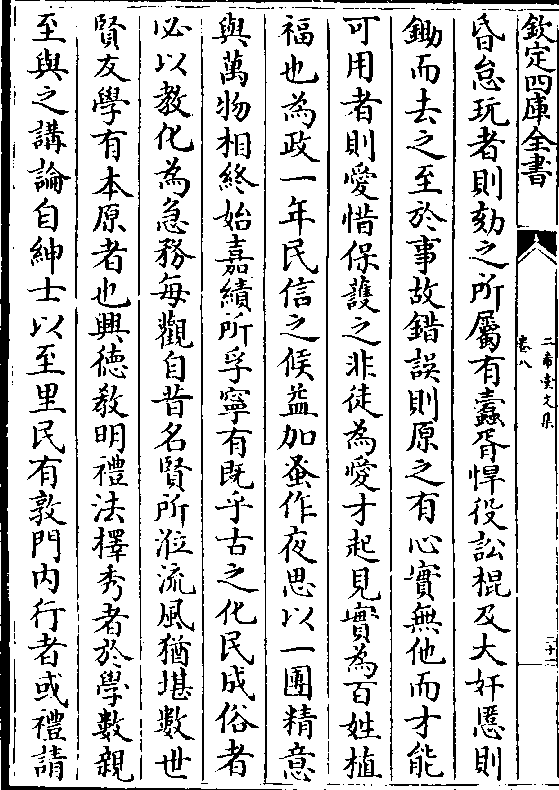 欽定四庫全書
二希堂文集
卷八
昏怠玩者則劾之所屬有蠹胥悍役訟棍及大奸慝則
鋤而去之至於事故錯誤則原之有心實無他而才能
可用者則愛惜保護之非徒為愛才起見實為百姓植
福也為政一年民信之候益加蚤作夜思以一團精意
與萬物相終始嘉績所孚寧有既乎古之化民成俗者
必以教化為急務每觀自昔名賢所涖流風猶堪數世
賢友學有本原者也興徳教明禮法擇秀者於學數親
至與之講論自紳士以至里民有敦門内行者或禮請